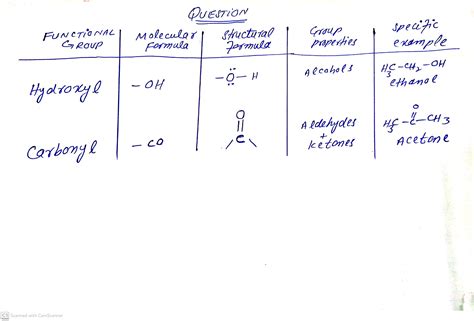 QUESTION
FUNCTIONAL GROUP | Molecular formula | Structural formula | Group properties | Specific example
Hydroxyl | - OH | -Ö- H | Alcohols | H3C-CH2-OH
ethanol
Carbonyl | - CO | O || C | Aldehydes + ketones | O || H3C-C-CH3
Acetone
CS Scanned with CamScanner